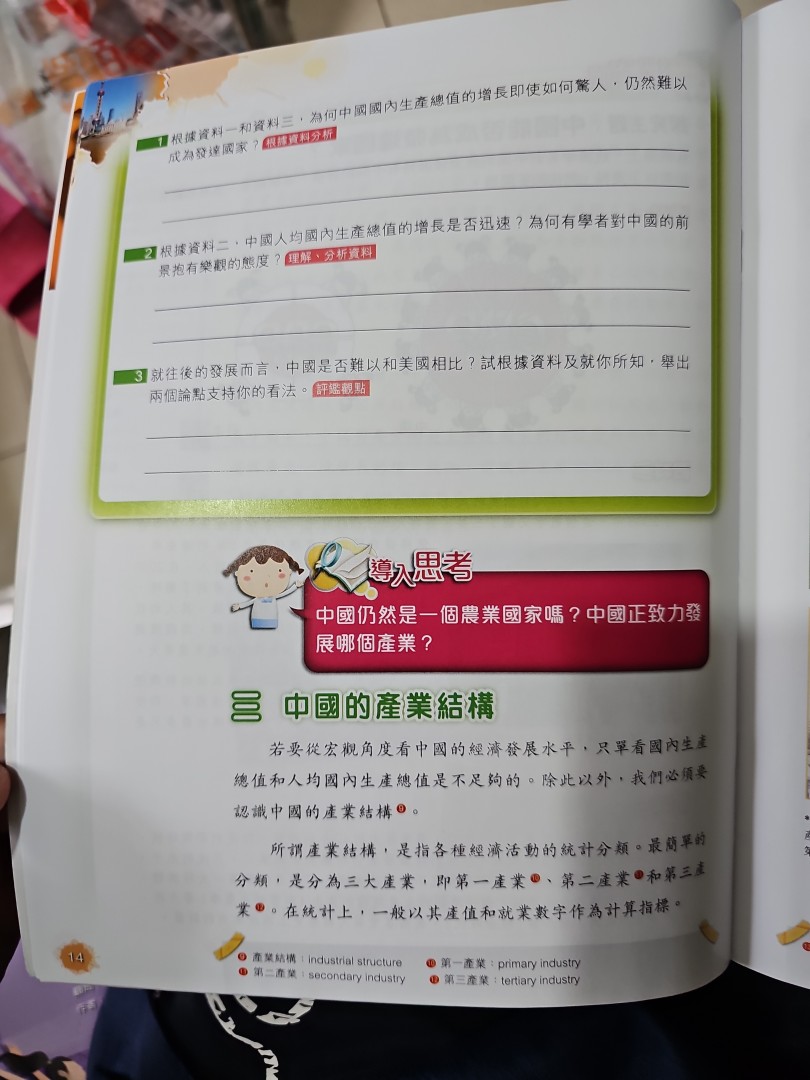 1 根據資料一和資料三，為何中國國內生產總值的增長即使如何驚人，仍然難以
成為發達國家？ 根據資料分析
2 根據資料二，中國人均國內生產總值的增長是否迅速？為何有學者對中國的前
景抱有樂觀的態度？ 理解、分析資料
3 就往後的發展而言，中國是否難以和美國相比？試根據資料及就你所知，舉出
兩個論點支持你的看法。 評鑑觀點
導入思考
中國仍然是一個農業國家嗎？中國正致力發
展哪個產業？
三 中國的產業結構
若要從宏觀角度看中國的經濟發展水平，只單看國內生產
總值和人均國內生產總值是不足夠的。除此以外，我們必須要
認識中國的產業結構❾。
所謂產業結構，是指各種經濟活動的統計分類。最簡單的
分類，是分為三大產業，即第一產業❿、第二產業⓫和第三產
業⓬。在統計上，一般以其產值和就業數字作為計算指標。
❾ 產業結構：industrial structure
❿ 第一產業：primary industry
⓫ 第二產業：secondary industry
⓬ 第三產業：tertiary industry
14